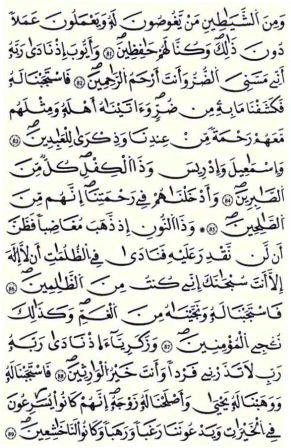 وَمِنَ الشَّيَاطِينِ مَنْ يَغُوصُونَ لَهُ وَيَعْمَلُونَ عَمَلًا
دُونَ ذَٰلِكَ وَكُنَّا لَهُمْ حَافِظِينَ ٨٢ وَأَيُّوبَ إِذْ نَادَىٰ رَبَّهُ
أَنِّي مَسَّنِيَ الضُّرُّ وَأَنْتَ أَرْحَمُ الرَّاحِمِينَ ٨٣ فَاسْتَجَبْنَا لَهُ
فَكَشَفْنَا مَا بِهِ مِنْ ضُرٍّ وَءَاتَيْنَاهُ أَهْلَهُ وَمِثْلَهُمْ
مَعَهُمْ رَحْمَةً مِنْ عِنْدِنَا وَذِكْرَىٰ لِلْعَابِدِينَ ٨٤
وَإِسْمَاعِيلَ وَإِدْرِيسَ وَذَا الْكِفْلِ كُلٌّ مِنَ
الصَّابِرِينَ ٨٥ وَأَدْخَلْنَاهُمْ فِي رَحْمَتِنَا إِنَّهُمْ مِنَ
الصَّالِحِينَ ٨٦ وَذَا النُّونِ إِذْ ذَهَبَ مُغَاضِبًا فَظَنَّ
أَنْ لَنْ نَقْدِرَ عَلَيْهِ فَنَادَىٰ فِي الظُّلُمَاتِ أَنْ لَا إِلَٰهَ
إِلَّا أَنْتَ سُبْحَانَكَ إِنِّي كُنْتُ مِنَ الظَّالِمِينَ ٨٧
فَاسْتَجَبْنَا لَهُ وَنَجَّيْنَاهُ مِنَ الْغَمِّ وَكَذَٰلِكَ
نُنْجِي الْمُؤْمِنِينَ ٨٨ وَزَكَرِيَّاءَ إِذْ نَادَىٰ رَبَّهُ
رَبِّ لَا تَذَرْنِي فَرْدًا وَأَنْتَ خَيْرُ الْوَارِثِينَ ٨٩ فَاسْتَجَبْنَا لَهُ
وَوَهَبْنَا لَهُ يَحْيَىٰ وَأَصْلَحْنَا لَهُ زَوْجَهُ إِنَّهُمْ كَانُوا يُسَارِعُونَ
فِي الْخَيْرَاتِ وَيَدْعُونَنَا رَغَبًا وَرَهَبًا وَكَانُوا لَنَا خَاشِعِينَ